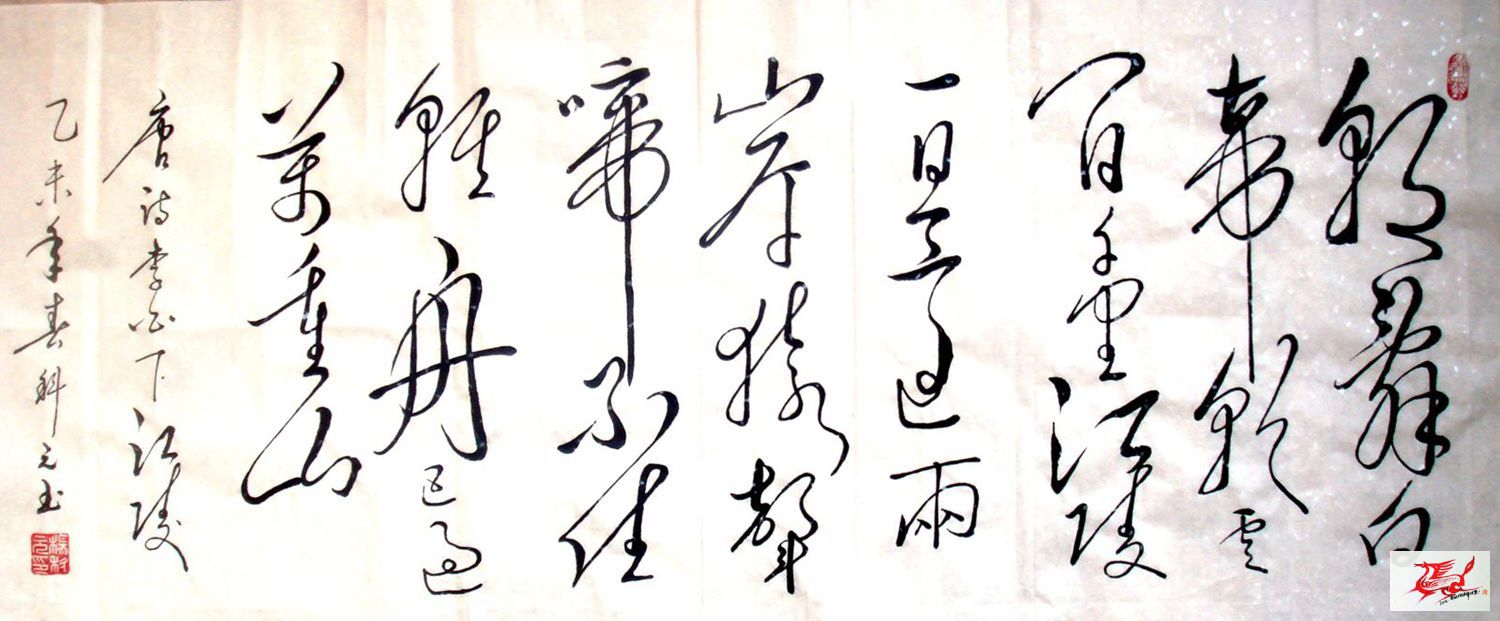 朝辭白
帝彩雲
間千里江陵
一日還兩
岸猿聲
啼不住
輕舟已過
萬重山
唐诗李白下江陵
乙未年春科元书